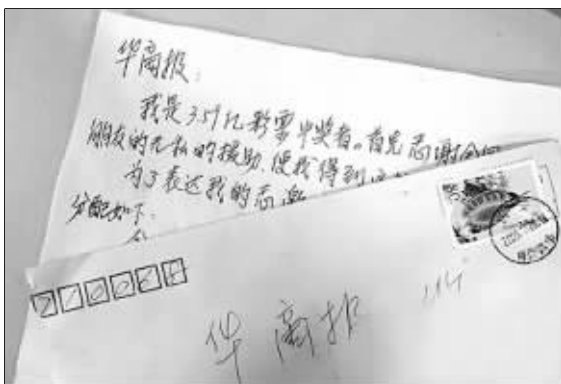 华商报：
我是3.59亿彩票中奖者。首先感谢
朋友的无私的援助，使我得到
为了表达我的感谢
分配如下：
710068
华商报